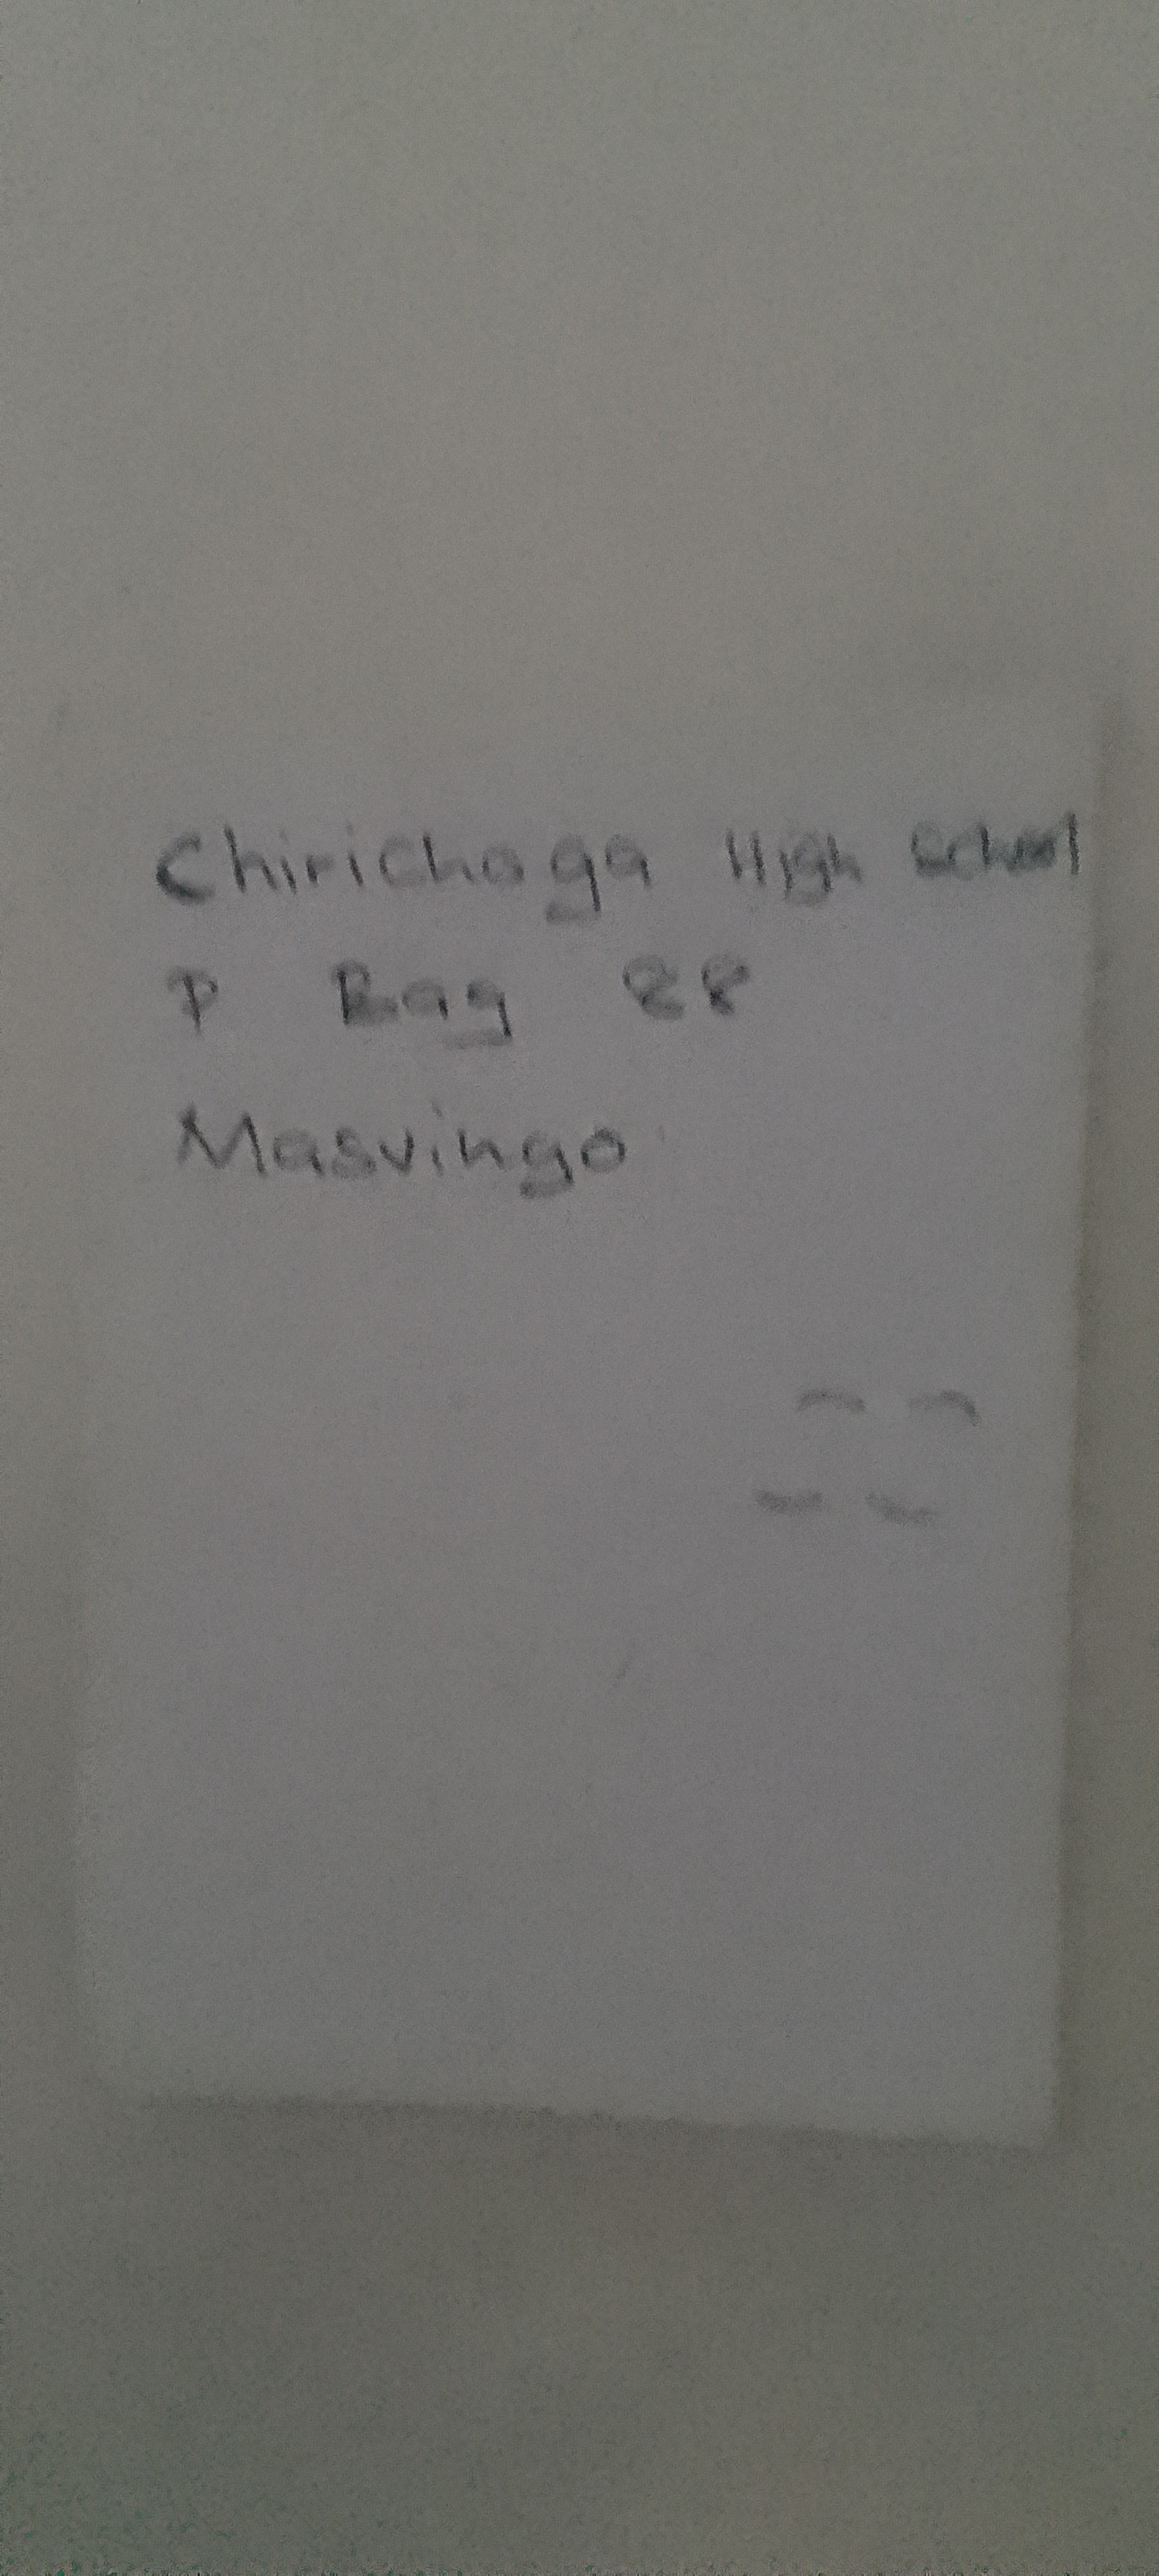 Chirichoga High School
P Bag 88
Masvingo